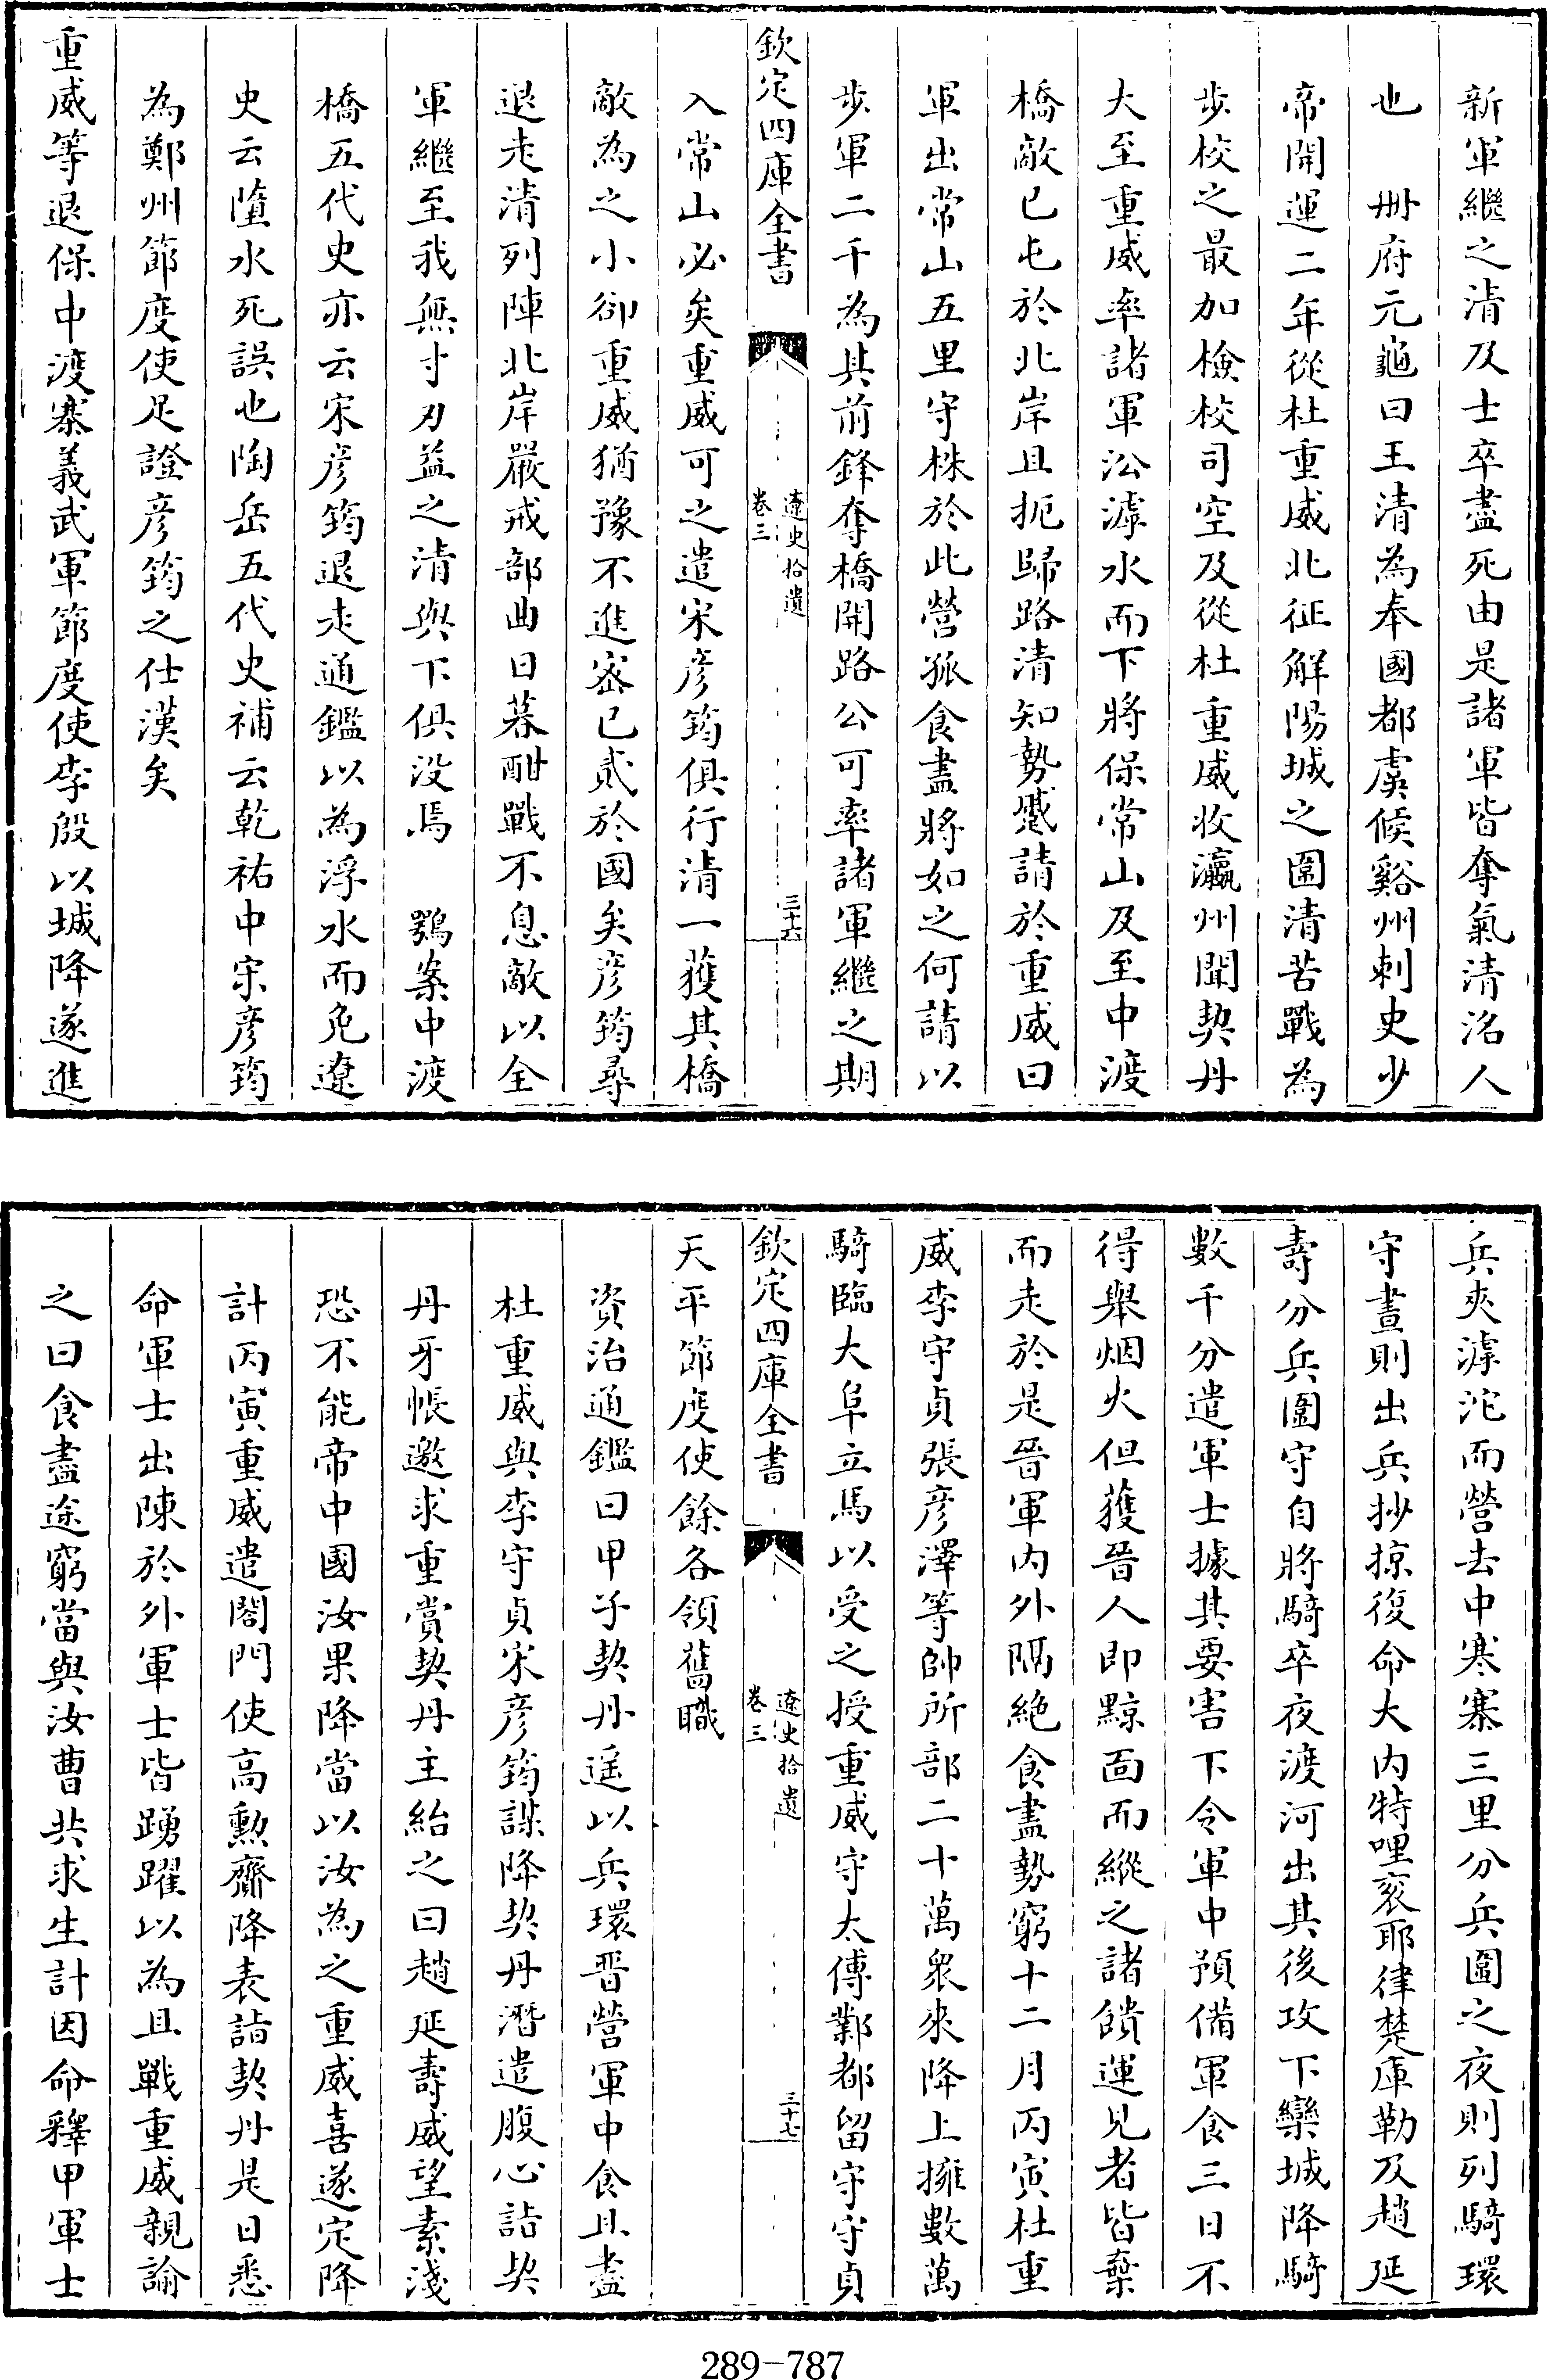 新軍繼之清及士卒盡死由是諸軍皆奪氣清洺人
也　冊府元龜曰王清為奉國都虞候谿州刺史少
帝開運二年從杜重威北征解陽城之圍清苦戰為
步校之最加檢校司空及從杜重威收瀛州聞契丹
大至重威率諸軍沿滹水而下將保常山及至中渡
橋敵已屯於北岸且扼歸路清知勢蹙請於重威曰
軍出常山五里守株於此營孤食盡將如之何請以
步軍二千為其前鋒奪橋開路公可率諸軍繼之期
欽定四庫全書
遼史拾遺
卷三
三十六
入常山必矣重威可之遣宋彦筠俱行清一獲其橋
敵為之小卻重威猶豫不進宻已貳於國矣彦筠尋
退走清列陣北岸嚴戒部曲日暮酣戰不息敵以全
軍繼至我無寸刃益之清與下俱没焉　鶚案中渡
橋五代史亦云宋彦筠退走通鑑以為浮水而免遼
史云墮水死誤也陶岳五代史補云乾祐中宋彦筠
為鄭州節度使足證彦筠之仕漢矣
重威等退保中渡寨義武軍節度使李殷以城降遂進
兵夾滹沱而營去中寒寨三里分兵圍之夜則列騎環
守晝則出兵抄掠復命大内特哩衮耶律楚庫勒及趙延
壽分兵圍守自將騎卒夜渡河出其後攻下欒城降騎
數千分遣軍士據其要害下令軍中預備軍食三日不
得舉烟火但獲晉人即黥面而縱之諸饋運見者皆棄
而走於是晉軍内外隔絶食盡勢窮十二月丙寅杜重
威李守貞張彦澤等帥所部二十萬衆來降上擁數萬
騎臨大阜立馬以受之授重威守太傅鄴都留守守貞
欽定四庫全書
遼史拾遺
卷三
三十七
天平節度使餘各領舊職
資治通鑑曰甲子契丹遥以兵環晋營軍中食且盡
杜重威與李守貞宋彦筠謀降契丹潛遣腹心詣契
丹牙帳邀求重賞契丹主紿之曰趙延壽威望素淺
恐不能帝中國汝果降當以汝為之重威喜遂定降
計丙寅重威遣閤門使高勲齎降表詣契丹是日悉
命軍士出陳於外軍士皆踴躍以為且戰重威親諭
之曰食盡途窮當與汝曹共求生計因命釋甲軍士
289-787